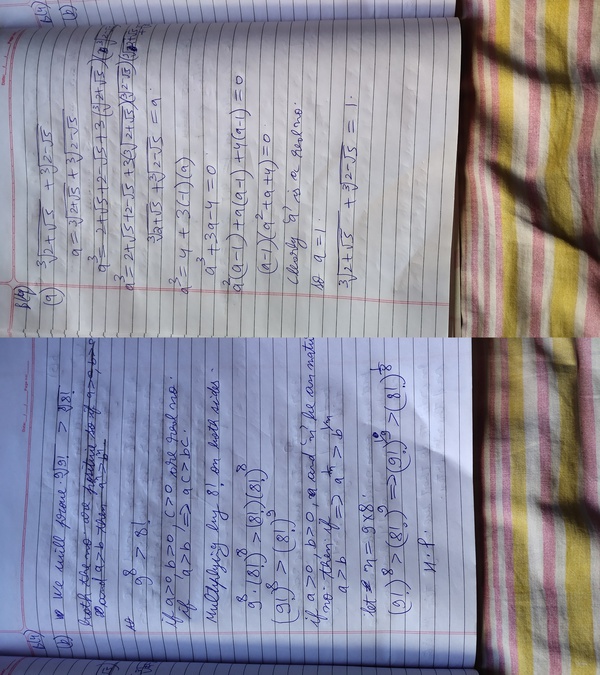 6(4)
(a) ∛(2+√5) + ∛(2-√5)
a = ∛(2+√5) + ∛(2-√5)
a³ = 2+√5+2-√5+3(∛(2+√5))(
a³ = 2+√5+2-√5+3(∛(2+√5))(∛(2-√5))(∛(2+√5)
∛(2+√5) + ∛(2-√5) = a
a³ = 4 + 3(-1)(a)
a³ + 3a - 4 = 0
a²(a-1) + a(a-1) + 4(a-1) = 0
(a-1)(a²+a+4) = 0
clearly 'a' is a real no.
so a = 1.
∛(2+√5) + ∛(2-√5) = 1.
(b) We will prove ⁹√9! > ⁸√8!
both the no are positive so if a>0, b>0
and a>b then
9⁸ > 8!
if a>0, b>0, c>0 are real no.
if a>b => ac>bc.
Multiplying by 8! on both sides.
9⁸·(8!)⁸ > (8!)(8!)⁸
(9!)⁸ > (8!)⁹
if a>0, b>0, and n be an natu
no. then if a>b => a^(1/n) > b^(1/n)
let n = 9×8.
(9!)⁸ > (8!)⁹ => (9!)^(1/9) > (8!)^(1/8)
H.P.